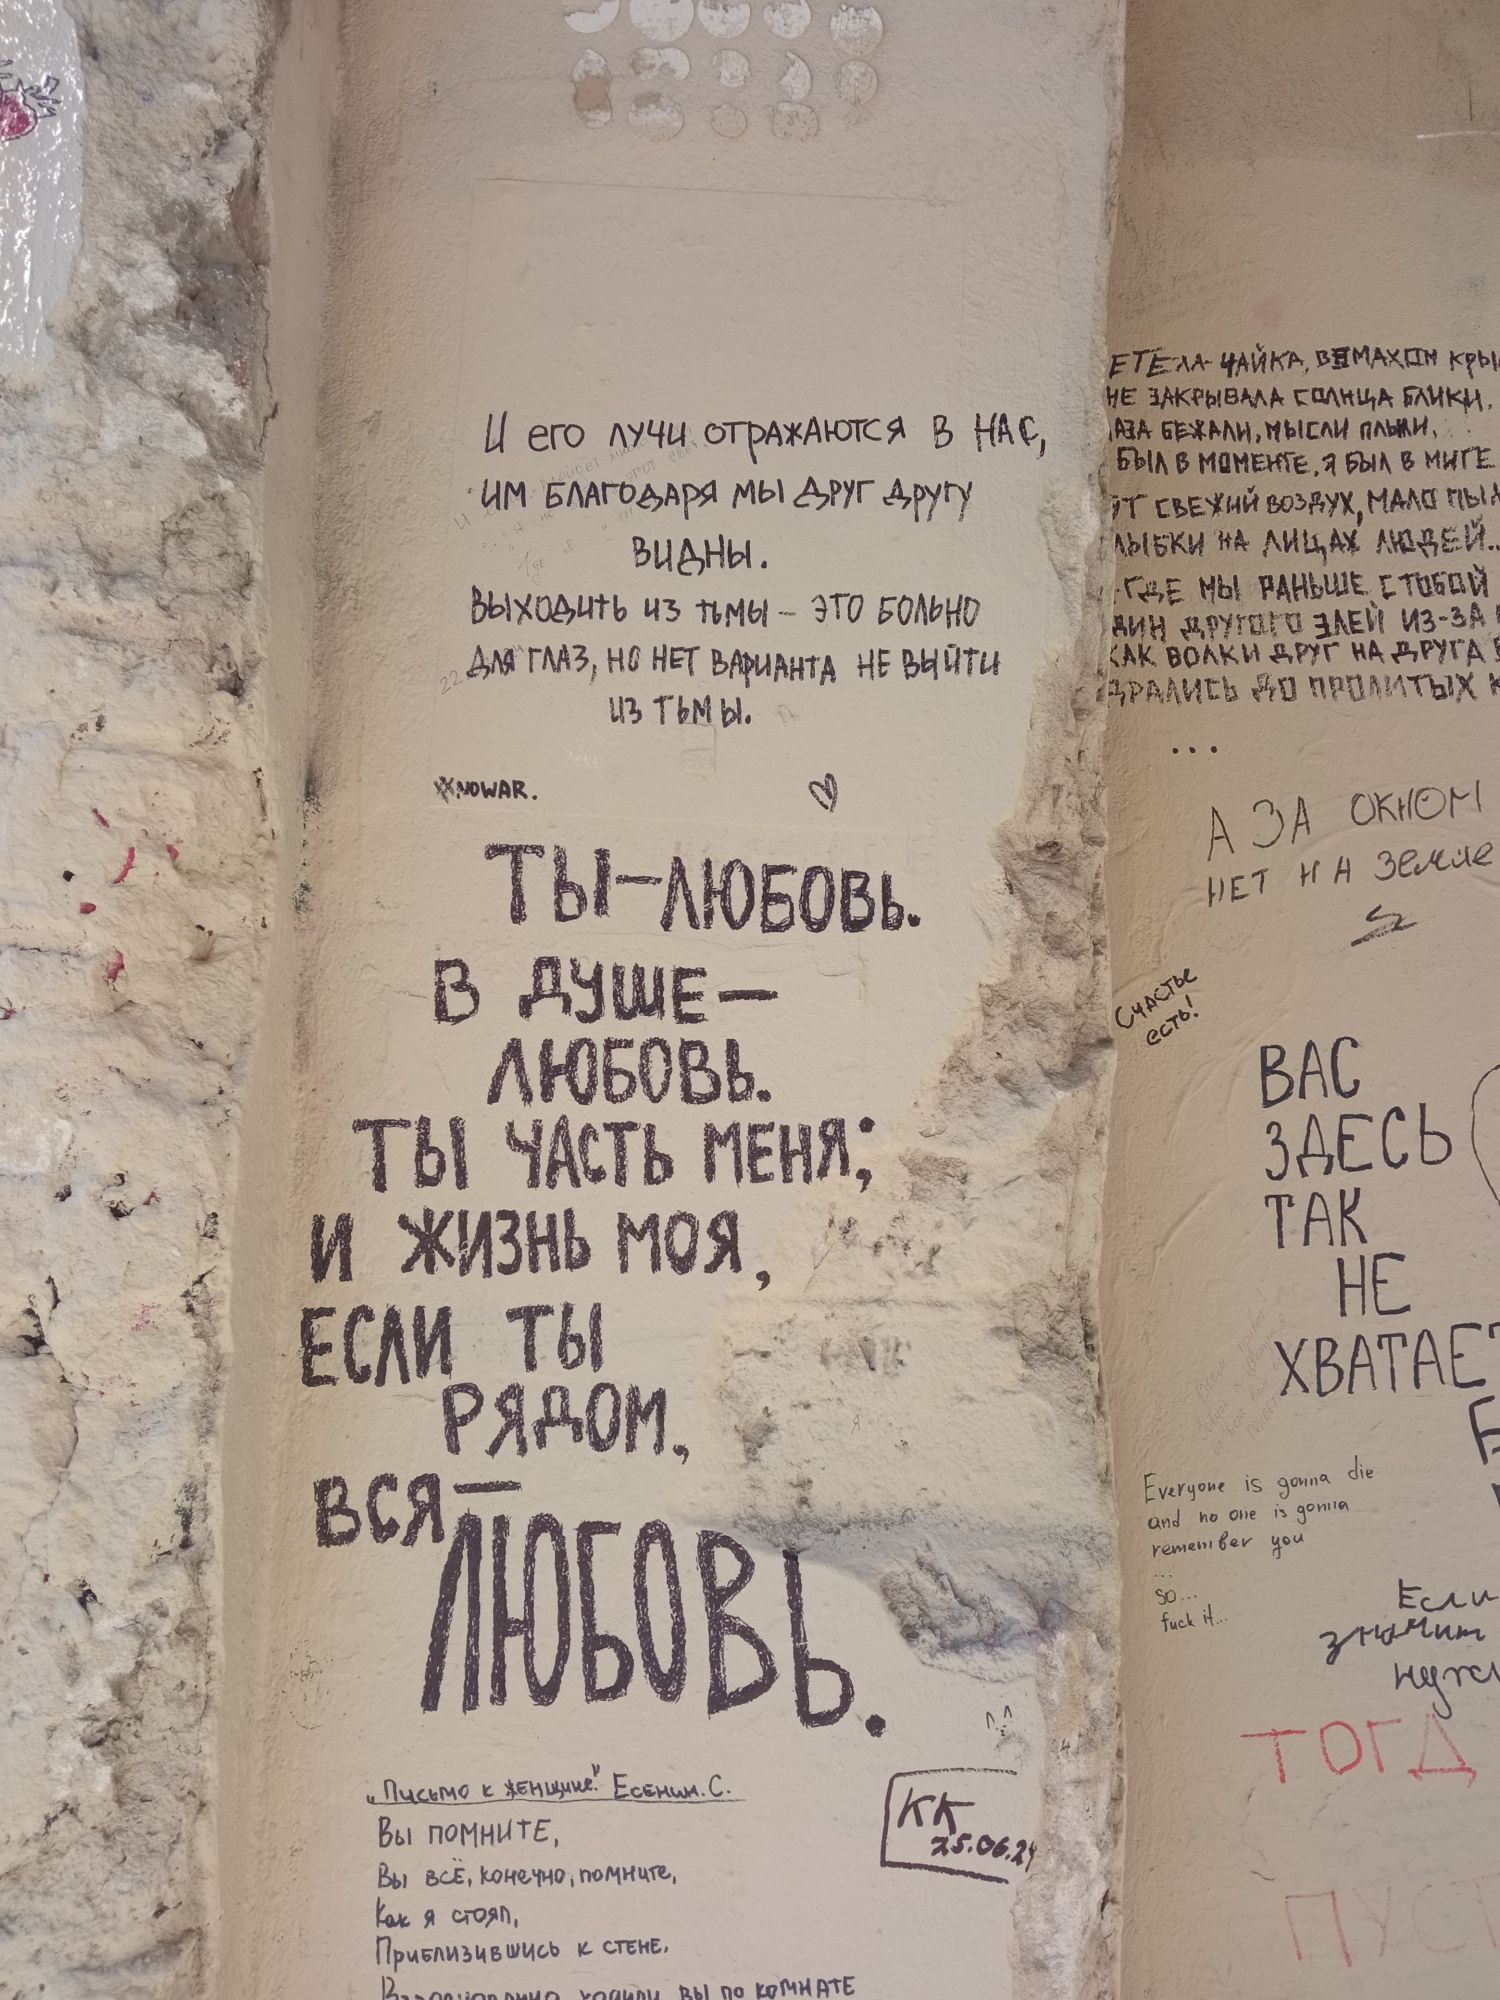 И его лучи отражаются в нас,
им благодаря мы друг другу
видны.
Выходить из тьмы – это больно
для глаз, но нет варианта не выйти
из тьмы.
NOWAR.
ТЫ – ЛЮБОВЬ.
В ДУШЕ –
ЛЮБОВЬ.
ТЫ ЧАСТЬ МЕНЯ;
И ЖИЗНЬ МОЯ,
ЕСЛИ ТЫ
РЯДОМ,
ВСЯ –
ЛЮБОВЬ.
„Письмо к женщине" Есенин. С.
Вы помните,
Вы всё, конечно, помните,
Как я стоял,
Приблизившись к стене,
ходили вы по комнате
КК
25.06.24
ЕТЕЛА ЧАЙКА, ВЗМАХОМ КРЫ
НЕ ЗАКРЫВАЛА СОЛНЦА БЛИКИ.
АЗА БЕЖАЛИ, МЫСЛИ ПЛЫЛИ,
БЫЛ В МОМЕНТЕ, Я БЫЛ В МИГЕ
УТ СВЕЖИЙ ВОЗДУХ, МАЛО ПЫЛ
ЛЫБКИ НА ЛИЦАХ ЛЮДЕЙ...
ГДЕ МЫ РАНЬШЕ С ТОБОЙ
ДИН ДРУГОГО ЗЛЕЙ ИЗ-ЗА
КАК ВОЛКИ ДРУГ НА ДРУГА
ДРАЛИСЬ ДО ПРОЛИТЫХ К
...
А ЗА ОКНОМ
НЕТ НА Земле
Счастье
есть!
ВАС
ЗДЕСЬ
ТАК
НЕ
ХВАТАЕТ
Everyone is gonna die
and no one is gonna
remember you
...
so...
fuck it...
Если
значит
нужн
ТОГД
ПУСТ